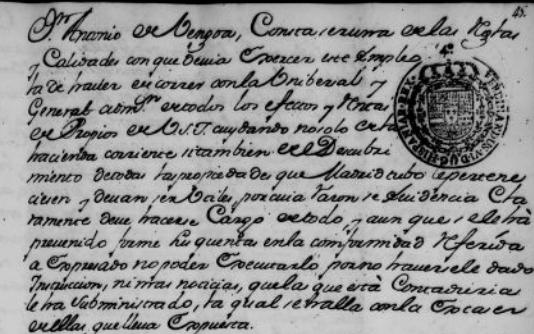 45.
Dn. Antonio de Mengoa, Consta ser una de las Notas
y Calidades con que devia Exercer este Empleo
la de haver de correr con la Universal y
General admon. de todos los efectos y Rentas
de Propios de V.S.I. cuydando no solo de la
hacienda corriente si tambien del Descubri
miento de todas las propiedades que Madrid tubo le pertene
ciesen y devian ser utiles, por cuia razon se evidencia Cla
ramente deve hacerse Cargo de todo, y aun que se le ha
prevenido forme sus quentas en la conformidad Referida
a Expresado no poder Executarlo por no haversele dado
Instruccion, ni mas noticias, que la que esta Contaduria
le ha Subministrado, la qual se halla con la
de ellas que lleva Expuesta.